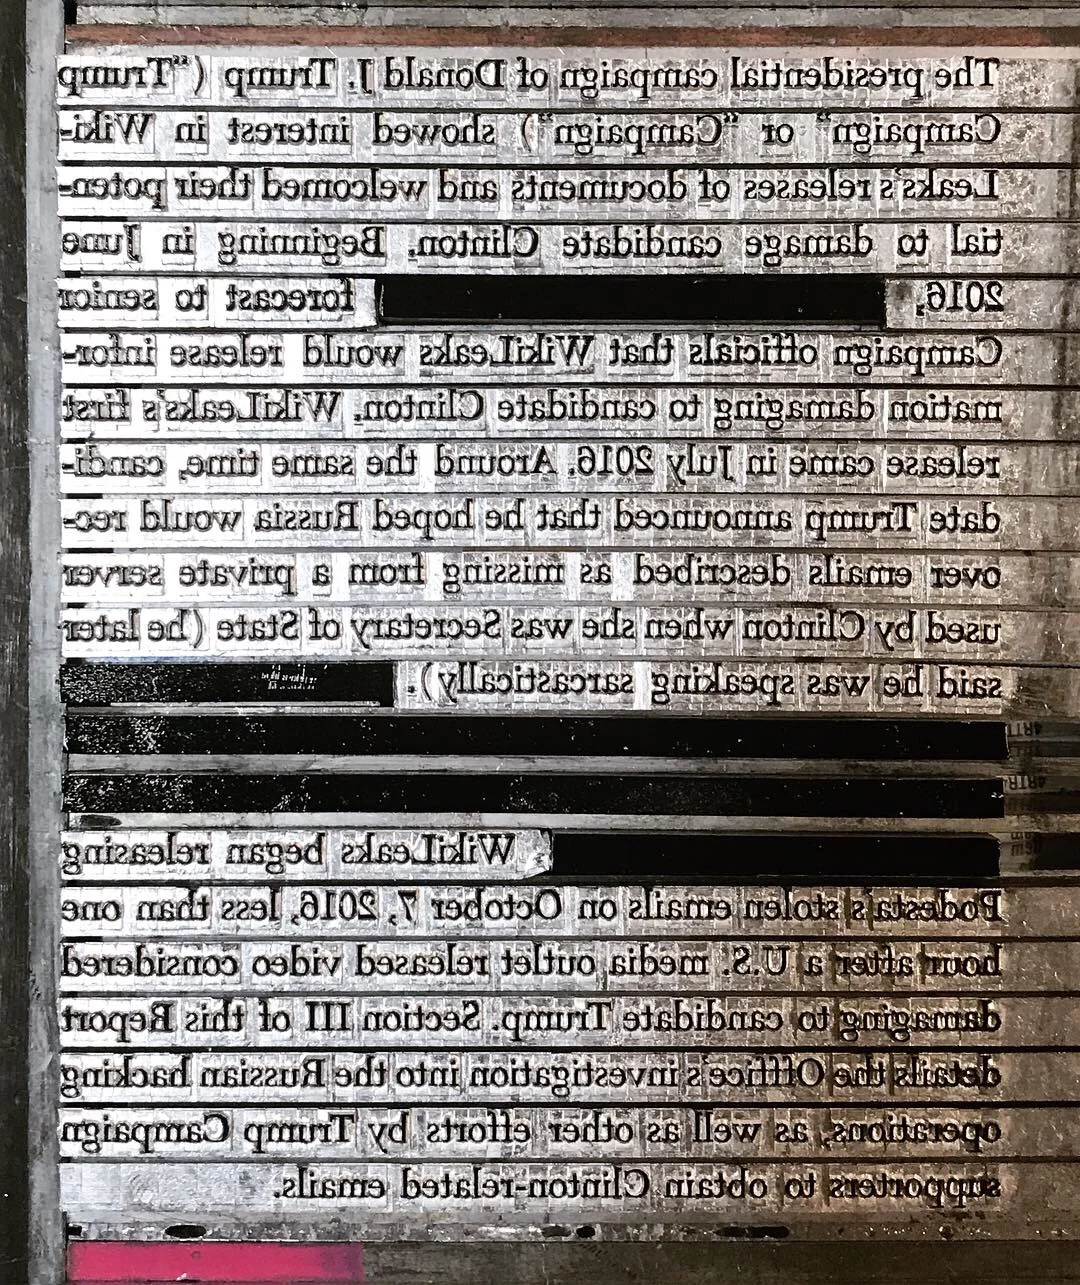 The presidential campaign of Donald J. Trump (“Trump
Campaign” or “Campaign”) showed interest in Wiki-
Leaks's releases of documents and welcomed their poten-
tial to damage candidate Clinton. Beginning in June
2016, forecast to senior
Campaign officials that WikiLeaks would release infor-
mation damaging to candidate Clinton. WikiLeaks's first
release came in July 2016. Around the same time, candi-
date Trump announced that he hoped Russia would rec-
over emails described as missing from a private server
used by Clinton when she was Secretary of State (he later
said he was speaking sarcastically).
WikiLeaks began releasing
Podesta's stolen emails on October 7, 2016, less than one
hour after a U.S. media outlet released video considered
damaging to candidate Trump. Section III of this Report
details the Office's investigation into the Russian hacking
operations, as well as other efforts by Trump Campaign
supporters to obtain Clinton-related emails.